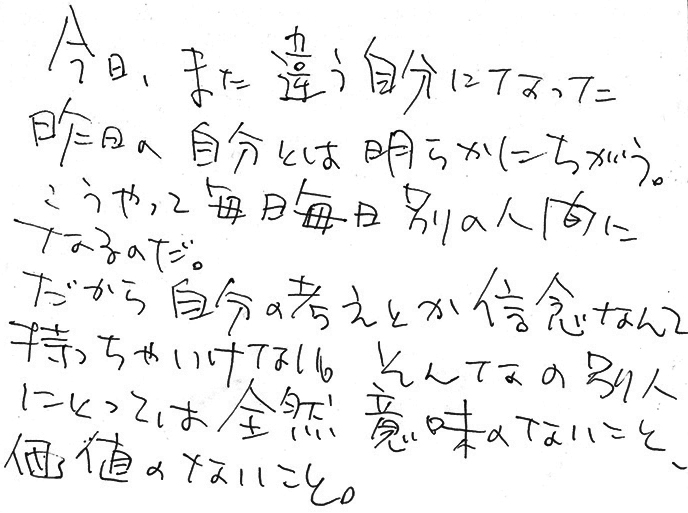 今日、また違う自分になった
昨日の自分とは明らかにちがう。
こうやって毎日毎日別の人間に
なるのだ。
だから自分の考えとか信念なんて
持っちゃいけない。そんなの別人
にとっては全然意味のないこと、
価値のないこと。